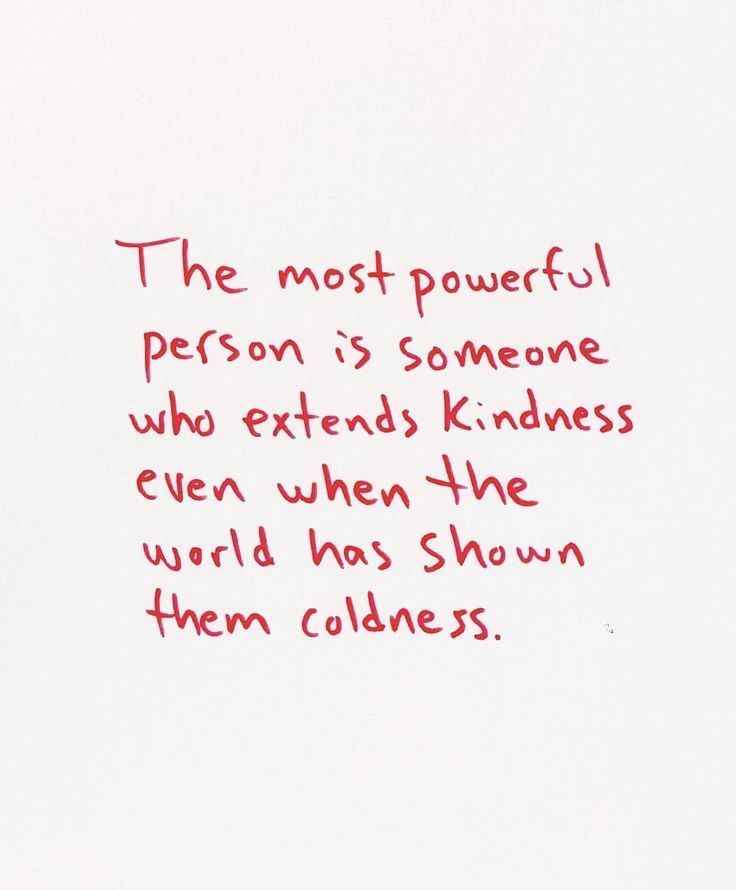 The most powerful
person is someone
who extends kindness
even when the
world has shown
them coldness.